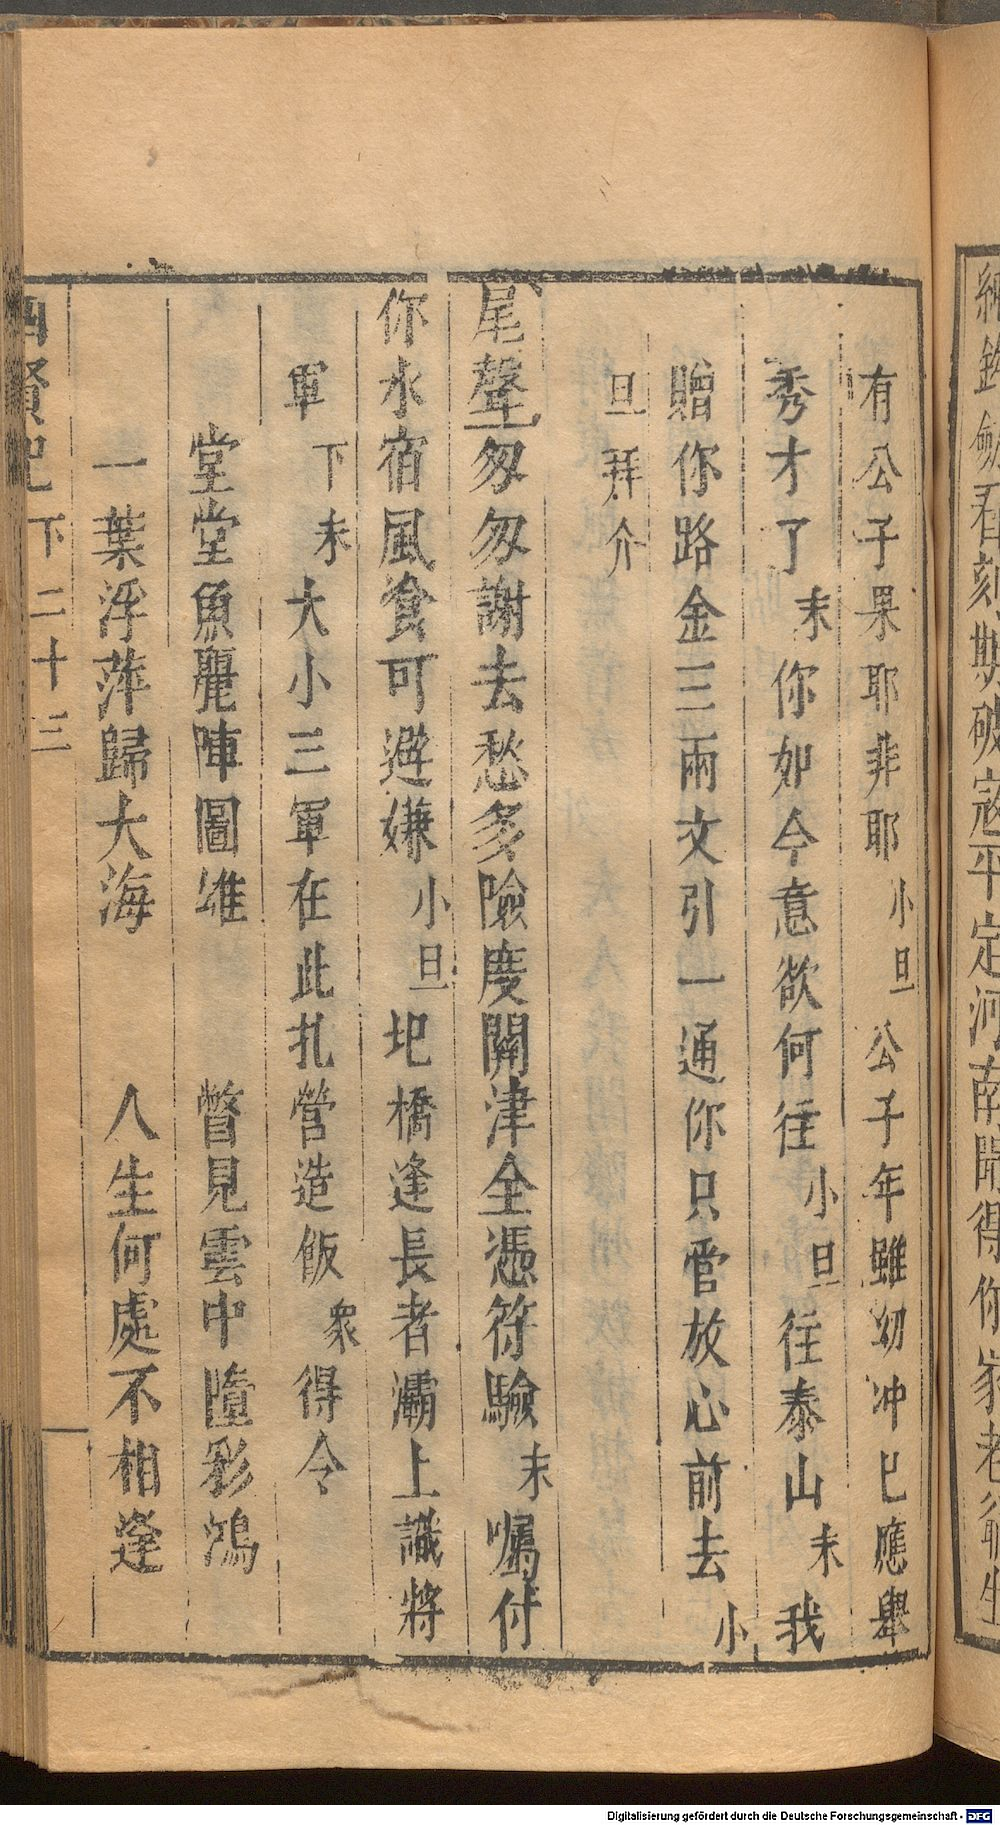 紅鉤劔看刻期破寇平定河南聞得你家老爺生
有公子果耶非耶小旦公子年雖幼冲已應舉
秀才了末你如今意欲何往小旦往泰山末我
贈你路金三兩文引一通你只管放心前去小
旦拜介
尾聲匆匆謝去愁多險度關津全憑符驗末囑付
你水宿風飡可避嫌小旦圯橋逢長者灞上識將
軍下末大小三軍在此扎營造飯衆得令
堂堂魚麗陣圖雄 瞥見雲中墮彩鴻
一葉浮萍歸大海 人生何處不相逢
四賢記 下 二十三
Digitalisierung gefördert durch die Deutsche Forschungsgemeinschaft - DFG